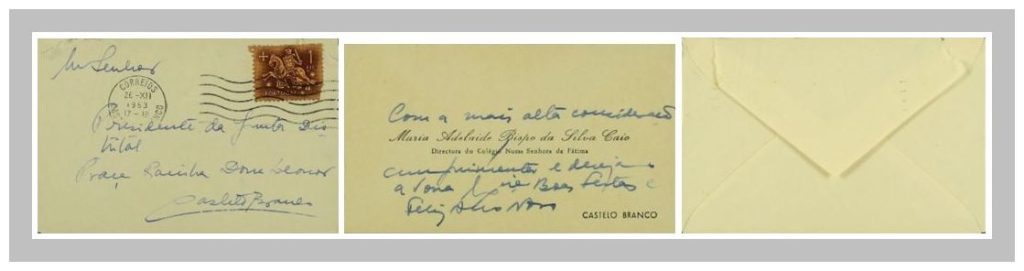 Senhor
CORREIOS
26-XII
1963
17-18
Presidente da Junta Dis
trital
Praça Rainha Dona Leonor
Castelo Branco
1
PORTUGAL
Com a mais alta consideração
Maria Adelaide Bispo da Silva Caio
Directora do Colégio Nossa Senhora da Fátima
cumprimenta e deseja
a Boas Festas e
Feliz Ano Novo
CASTELO BRANCO